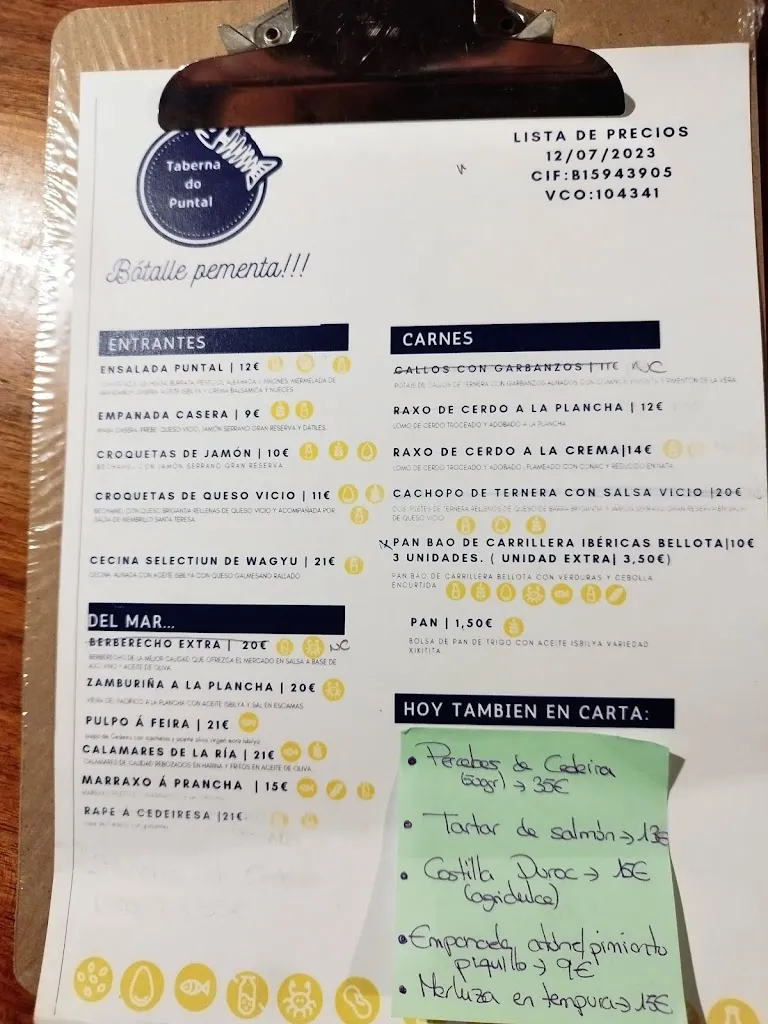 Taberna
do
Puntal
LISTA DE PRECIOS
12/07/2023
CIF:B15943905
VCO:104341
Bótalle pementa!!!
ENTRANTES
ENSALADA PUNTAL | 12€
EMPANADA CASERA | 9€
MASA CASERA, PREBE, QUESO VICIO, JAMÓN SERRANO GRAN RESERVA Y DÁTILES.
CROQUETAS DE JAMÓN | 10€
BECHAMEL CON JAMÓN SERRANO GRAN RESERVA
CROQUETAS DE QUESO VICIO | 11€
BECHAMEL CON QUESO BRIGANTIA RELLENAS DE QUESO VICIO Y ACOMPAÑADA POR
SALSA DE MEMBRILLO SANTA TERESA
CECINA SELECTIUN DE WAGYU | 21€
CECINA ALIÑADA CON ACEITE ISBILYA CON QUESO GALMESANO RALLADO
DEL MAR...
BERBERECHO EXTRA | 20€ NC
BERBERECHO DE LA MEJOR CALIDAD QUE OFREZCA EL MERCADO EN SALSA A BASE DE
AJO, VINO Y ACEITE DE OLIVA
ZAMBURIÑA A LA PLANCHA | 20€
VIEIRA DEL PACÍFICO A LA PLANCHA CON ACEITE ISBILYA Y SAL EN ESCAMAS
PULPO Á FEIRA | 21€
CALAMARES DE LA RÍA | 21€
CALAMARES DE CALIDAD REBOZADOS EN HARINA Y FRITOS EN ACEITE DE OLIVA
MARRAXO Á PRANCHA | 15€
RAPE Á CEDEIRESA |21€
CARNES
CALLOS CON GARBANZOS | 11€ NC
POTAJE DE CALLOS DE TERNERA CON GARBANZOS ALIÑADOS CON COMINOS, PIMIENTA Y PIMENTÓN DE LA VERA.
RAXO DE CERDO A LA PLANCHA | 12€
LOMO DE CERDO TROCEADO Y ADOBADO A LA PLANCHA
RAXO DE CERDO A LA CREMA|14€
LOMO DE CERDO TROCEADO Y ADOBADO, FLAMEADO CON COÑAC Y REDUCIDO EN NATA
CACHOPO DE TERNERA CON SALSA VICIO |20€
DE QUESO VICIO
PAN BAO DE CARRILLERA IBÉRICAS BELLOTA|10€
3 UNIDADES. ( UNIDAD EXTRA| 3,50€)
PAN BAO DE CARRILLERA BELLOTA CON VERDURAS Y CEBOLLA
ENCURTIDA
PAN | 1,50€
BOLSA DE PAN DE TRIGO CON ACEITE ISBILYA VARIEDAD
XIKITITA
HOY TAMBIEN EN CARTA:
• Percebes de Cedeira
(500gr) → 35€
• Tartar de salmón → 13€
• Costilla Duroc → 15€
(agridulce)
• Empanada atún/pimiento
piquillo → 9€
• Merluza en tempura → 15€